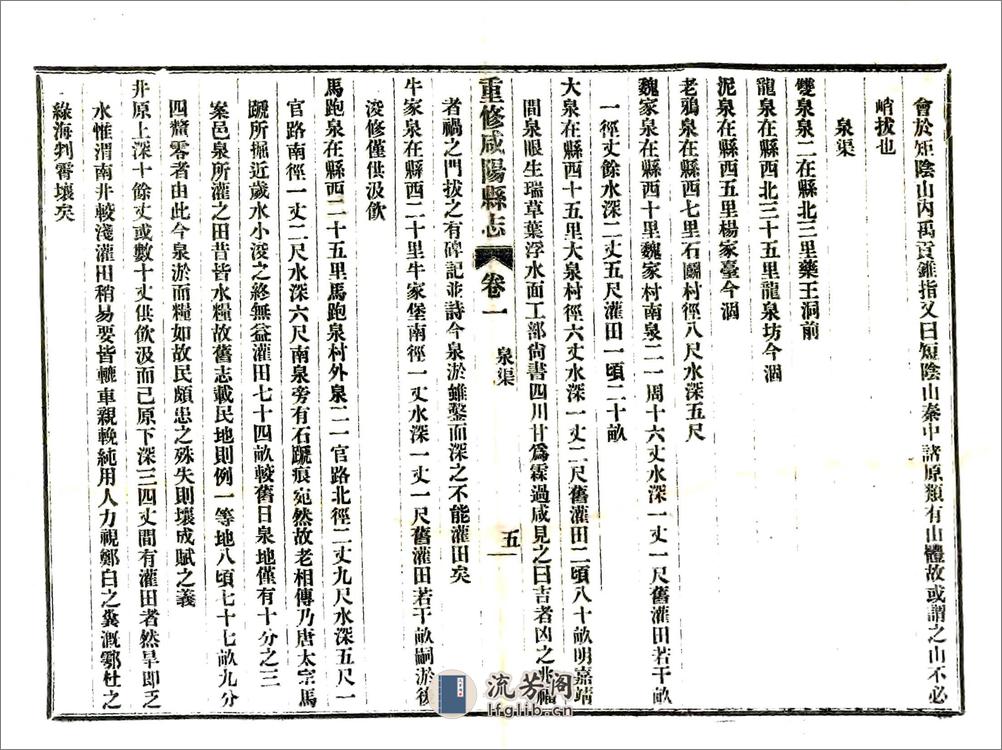 會於矩陰山內禹貢錐指又曰短陰山秦中諸原類有山體故或謂之山不必
峭拔也
泉渠
雙泉泉二在縣北三里藥王洞前
龍泉在縣西北三十五里龍泉坊今涸
泥泉在縣西五里楊家臺今涸
老鴉泉在縣西七里石國村徑八尺水深五尺
魏家泉在縣西十里魏家村南泉二一周十六丈水深一丈一尺舊灌田若干畝
一徑丈餘水深二丈五尺灌田一頃二十畝
大泉在縣西十五里大泉村徑六丈水深一丈二尺舊灌田二頃八十畝明嘉靖
間泉眼生瑞草葉浮水面工部尙書四川甘爲霖過咸見之曰吉者凶之兆福
重修咸陽縣志 卷一 泉渠 五
者禍之門拔之有碑記並詩今泉淤雖鑿而深之不能灌田矣
牛家泉在縣西二十里牛家堡南徑一丈水深一丈一尺舊灌田若干畝嗣淤後
浚修僅供汲飲
馬跑泉在縣西二十五里馬跑泉村外泉二一官路北徑二丈九尺水深五尺一
官路南徑一丈二尺水深六尺南泉旁有石蹏痕宛然故老相傳乃唐太宗馬
蹏所掘近歲水小浚之終無益灌田七十四畝較舊日泉地僅有十分之三
案邑泉所灌之田昔皆水糧故舊志載民地則例一等地八頃七十七畝九分
四釐零者由此今泉淤而糧如故民頗患之殊失則壤成賦之義
井原上深十餘丈或數十丈供飲汲而已原下深三四丈間有灌田者然旱即乏
水惟渭南井較淺灌田稍易要皆轆車親輓純用人力視鄭白之糞漑鄠杜之
綠海判霄壤矣
流芳阁
lfglib.cn